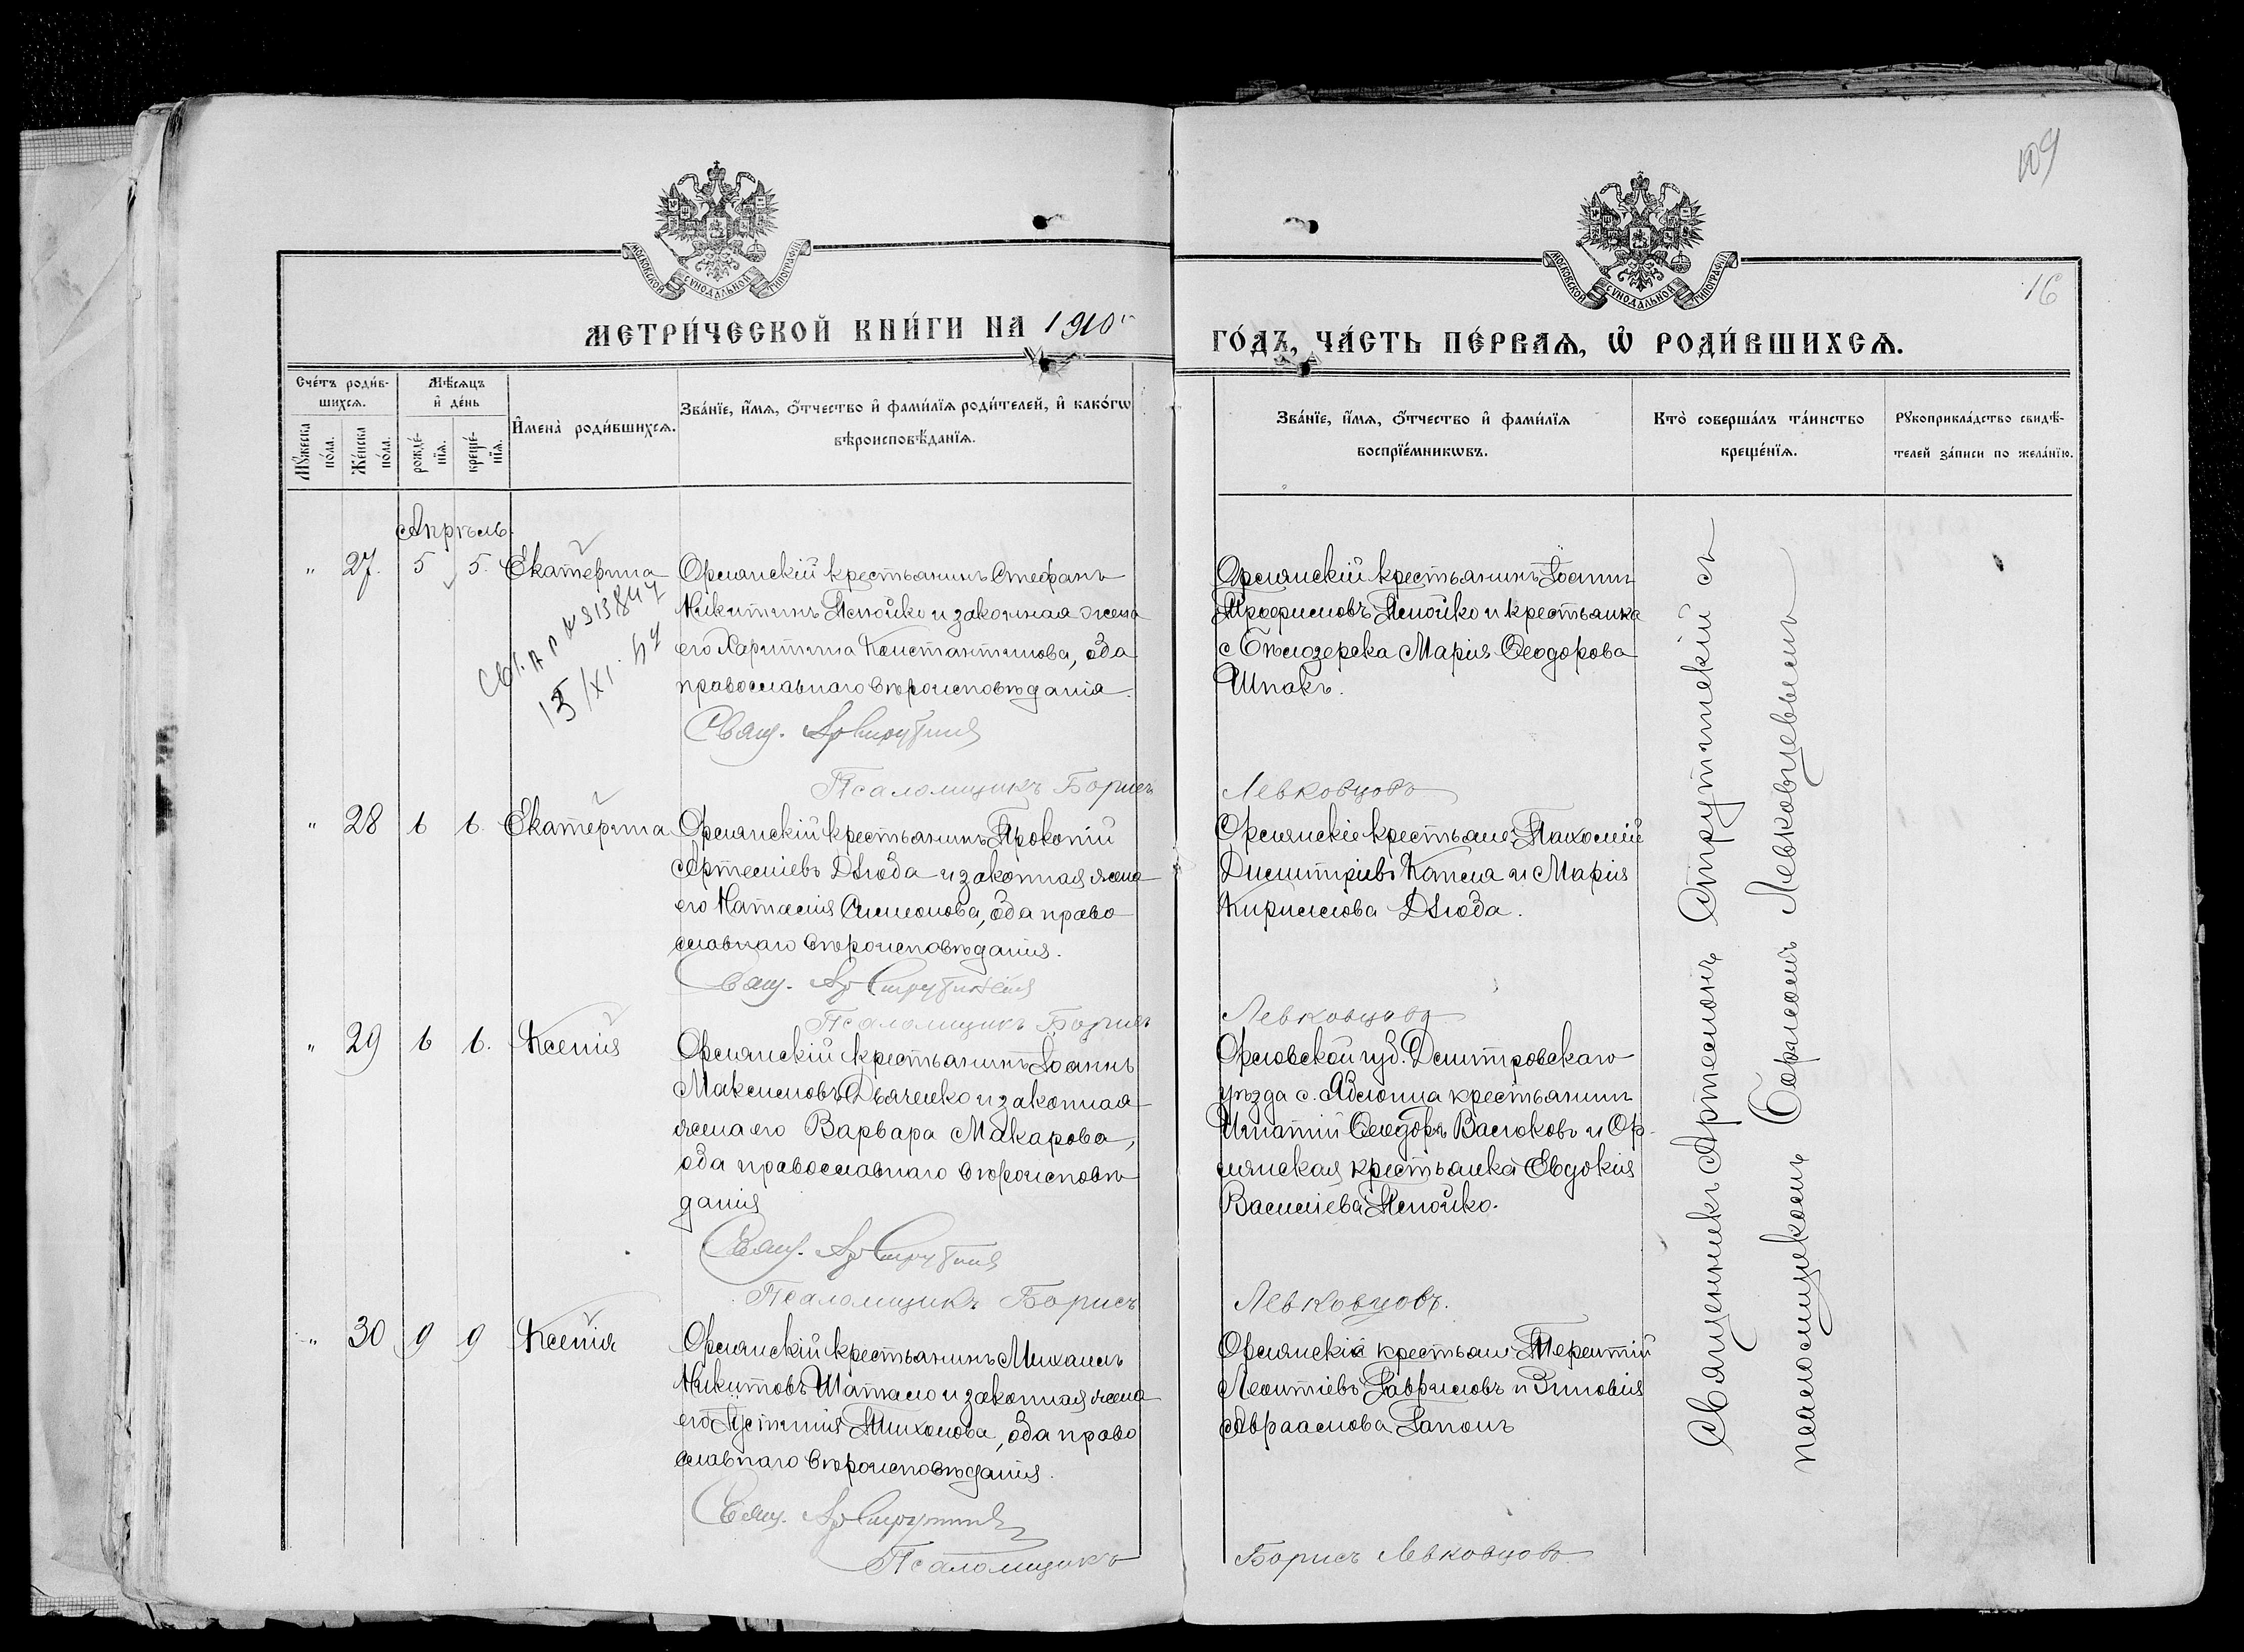 109
МОСКОВСКОЙ СѴНОДАЛЬНОЙ ТИПОГРАФІИ
МОСКОВСКОЙ СѴНОДАЛЬНОЙ ТИПОГРАФІИ
16
МЕТРИ́ЧЕСКОЙ КНИ́ГИ НА 1910
ГО́ДЪ, ЧА́СТЬ ПЕ́РВАѦ, Ѡ РОДИ́ВШИХСѦ.
Сче́тъ роди́в-
шихсѧ.
Мꙋ́жеска
по́ла.
Же́нска
по́ла.
Мѣ́сѧцъ
и҆ де́нь
рожде́-
нїѧ.
креще́-
нїѧ.
И҆мена̀ роди́вшихсѧ.
Зва́нїе, и҆́мѧ, ѻ҆́тчество и҆ фами́лїѧ роди́телей, и҆ како́гѡ
вѣроисповѣ́данїѧ.
Зва́нїе, и҆́мѧ, ѻ҆́тчество и҆ фами́лїѧ
воспрїе́мникѡвъ.
Кто̀ соверша́лъ та́инство
креще́нїѧ.
Рꙋкоприкла́дство свидѣ́-
телей за́писи по жела́нїю.
Апрѣль.
" 27. 5 5. Екатерина
Орлянскій крестьянинъ Стефанъ
Никитинъ Япойко и законная жена
его Харитина Константинова, оба
православнаго вѣроисповѣданія.
Свящ. Ар Струтинскій
Псаломщикъ Борисъ
Орлянскій крестьянинъ Іоаннъ
Трофимовъ Япойко и крестьянка
с Бѣлозерска Марія Ѳеодорова
Шпакъ.
Левковцовъ
" 28 6 6. Екатерина
Орлянскій крестьянинъ Прокопій
Артеміевъ Дзюба и законная жена
его Наталія Симеонова, оба право
славнаго вѣроисповѣданія.
Свящ. Ар Струтинскій
Псаломщикъ Борисъ
Орлянскіе крестьяне: Пахомій
Димитріевъ Капля и Марія
Кириллова Дзюба.
Левковцовъ
" 29 6 6. Ксенія
Орлянскій крестьянинъ Іоаннъ
Максимовъ Дьяченко и законная
жена его Варвара Макарова,
оба православнаго вѣроисповѣ
данія
Свящ. Ар Струтинскій
Псаломщикъ Борисъ
Орловской губ. Дмитровскаго
уѣзда с. Яблонца крестьянинъ
Игнатій Ѳеодоръ Васюковъ и Ор-
лянская крестьянка Евдокія
Василіева Япойко.
Левковцовъ.
" 30 9 9 Ксенія
Орлянскій крестьянинъ Михаилъ
Никитовъ Шатало и законная жена
его Іустинія Тихонова, оба право
славнаго вѣроисповѣданія.
Свящ. Ар Струтинскій
Псаломщикъ
Орлянскіе крестьяне Терентій
Леонтіевъ Гавриловъ и Зиновія
Авраамова Гапонъ
Борисъ Левковцовъ
Священникъ Артемонъ Струтинскій съ
псаломщикомъ Борисомъ Левковцевымъ